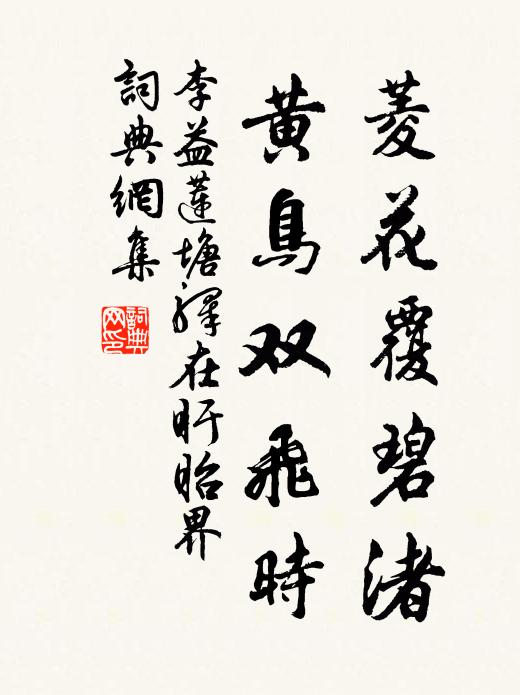 菱花覆碧渚
黄鳥双飛時
李益蓮塘驛在盱眙界
詞典網集
詞典网印